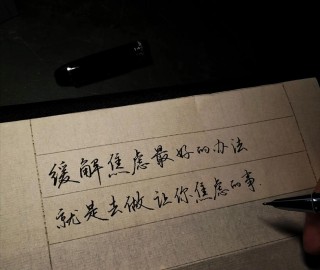 缓解焦虑最好的办法
就是去做让你焦虑的事